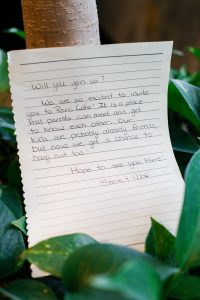 Will you join us?
We are so excited to invite
you to Paris Cafe! It is a place
that parents can meet and get
to know each other. Our
kids are probably already friends,
but now we get a chance to
hang out too!
Hope to see you there